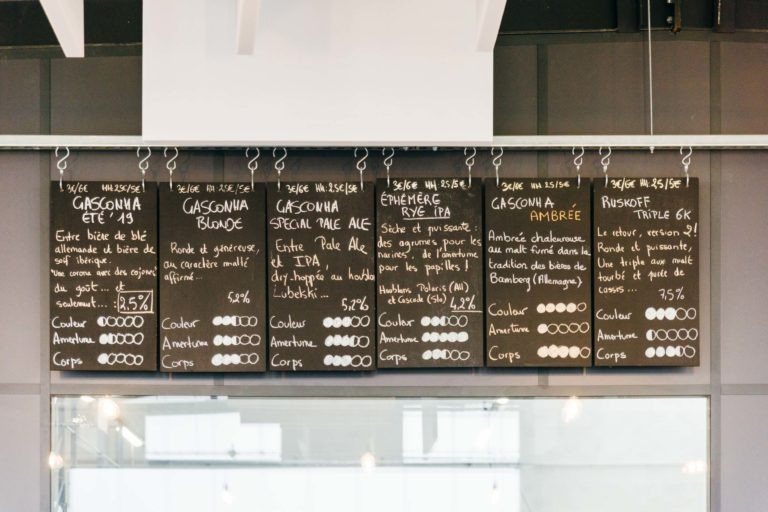 3€/6€ HH 2.5€/5€
GASCONHA
ÉTÉ '19
Entre bière de blé
allemande et bière de
soif ibérique.
"Une corona avec des cojones,
du goût... et
seulement.... 2,5%
Couleur
Amertume
Corps
3€/6€ HH 2.5€/5€
GASCONHA
BLONDE
Ronde et généreuse,
au caractère malté
affirmé...
5,2%
Couleur
Amertume
Corps
3€/6€ HH 2.5€/5€
GASCONHA
SPECIAL PALE ALE
Entre Pale Ale
et IPA,
dry-hoppée au houblon
Lubelski...
5,2%
Couleur
Amertume
Corps
3€/6€ HH 2.5/5€
ÉPHÉMÈRE
RYE IPA
Sèche et puissante :
des agrumes pour les
narines, de l'amertume
pour les papilles !
Houblons Polaris (All)
et Cascade (Slo) 4,2%
Couleur
Amertume
Corps
3€/6€ HH 2.5/5€
GASCONHA
AMBRÉE
Ambrée chaleureuse
au malt fumé dans la
tradition des bières de
Bamberg (Allemagne)
Couleur
Amertume
Corps
3€/6€ HH 2.5/5€
RUSKOFF
TRIPLE 6K
Le retour, version 2!
Ronde et puissante,
Une triple aux malt
tourbé et purée de
cassis...
7,5%
Couleur
Amertume
Corps